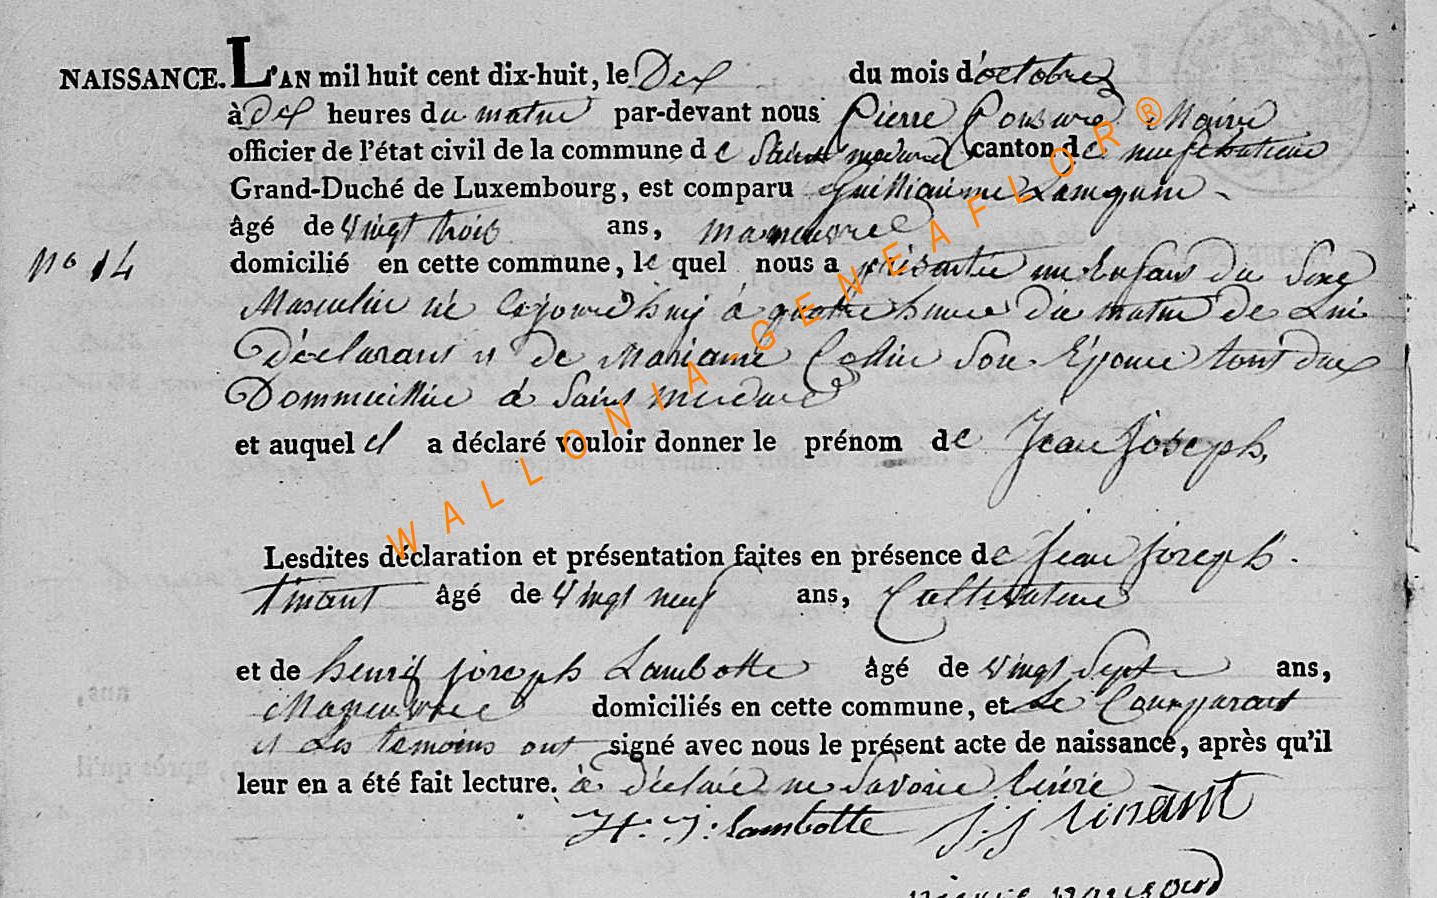 NAISSANCE. L'AN mil huit cent dix-huit, le Dix du mois d'octobre
à dix heures du matin par-devant nous Pierre Maire
officier de l'état civil de la commune de Saint medard canton de neufchateau
Grand-Duché de Luxembourg, est comparu Guilliaume
âgé de vingt trois ans, maneuvre
no 14
domicilié en cette commune, le quel nous a présentée un Enfant du Sexe
Masculin né à quatre heure du matin de Lui
Déclarant et de Mariane Collin Son Epouse tout deux
Dommicilliée à Saint medard
et auquel il a déclaré vouloir donner le prénom de Jean Joseph,
Lesdites déclaration et présentation faites en présence de Jean Joseph
Tinant âgé de vingt neuf ans, Cultivateur
et de henry joseph Lambotte âgé de vingt Sept ans,
Maneuvre domiciliés en cette commune, et Le Comparant
et Les temoins ont signé avec nous le présent acte de naissance, après qu'il
leur en a été fait lecture. à déclaré ne Savoir
H: J: Lambotte J:J tinant
WALLONIA-GENEAFLOR®